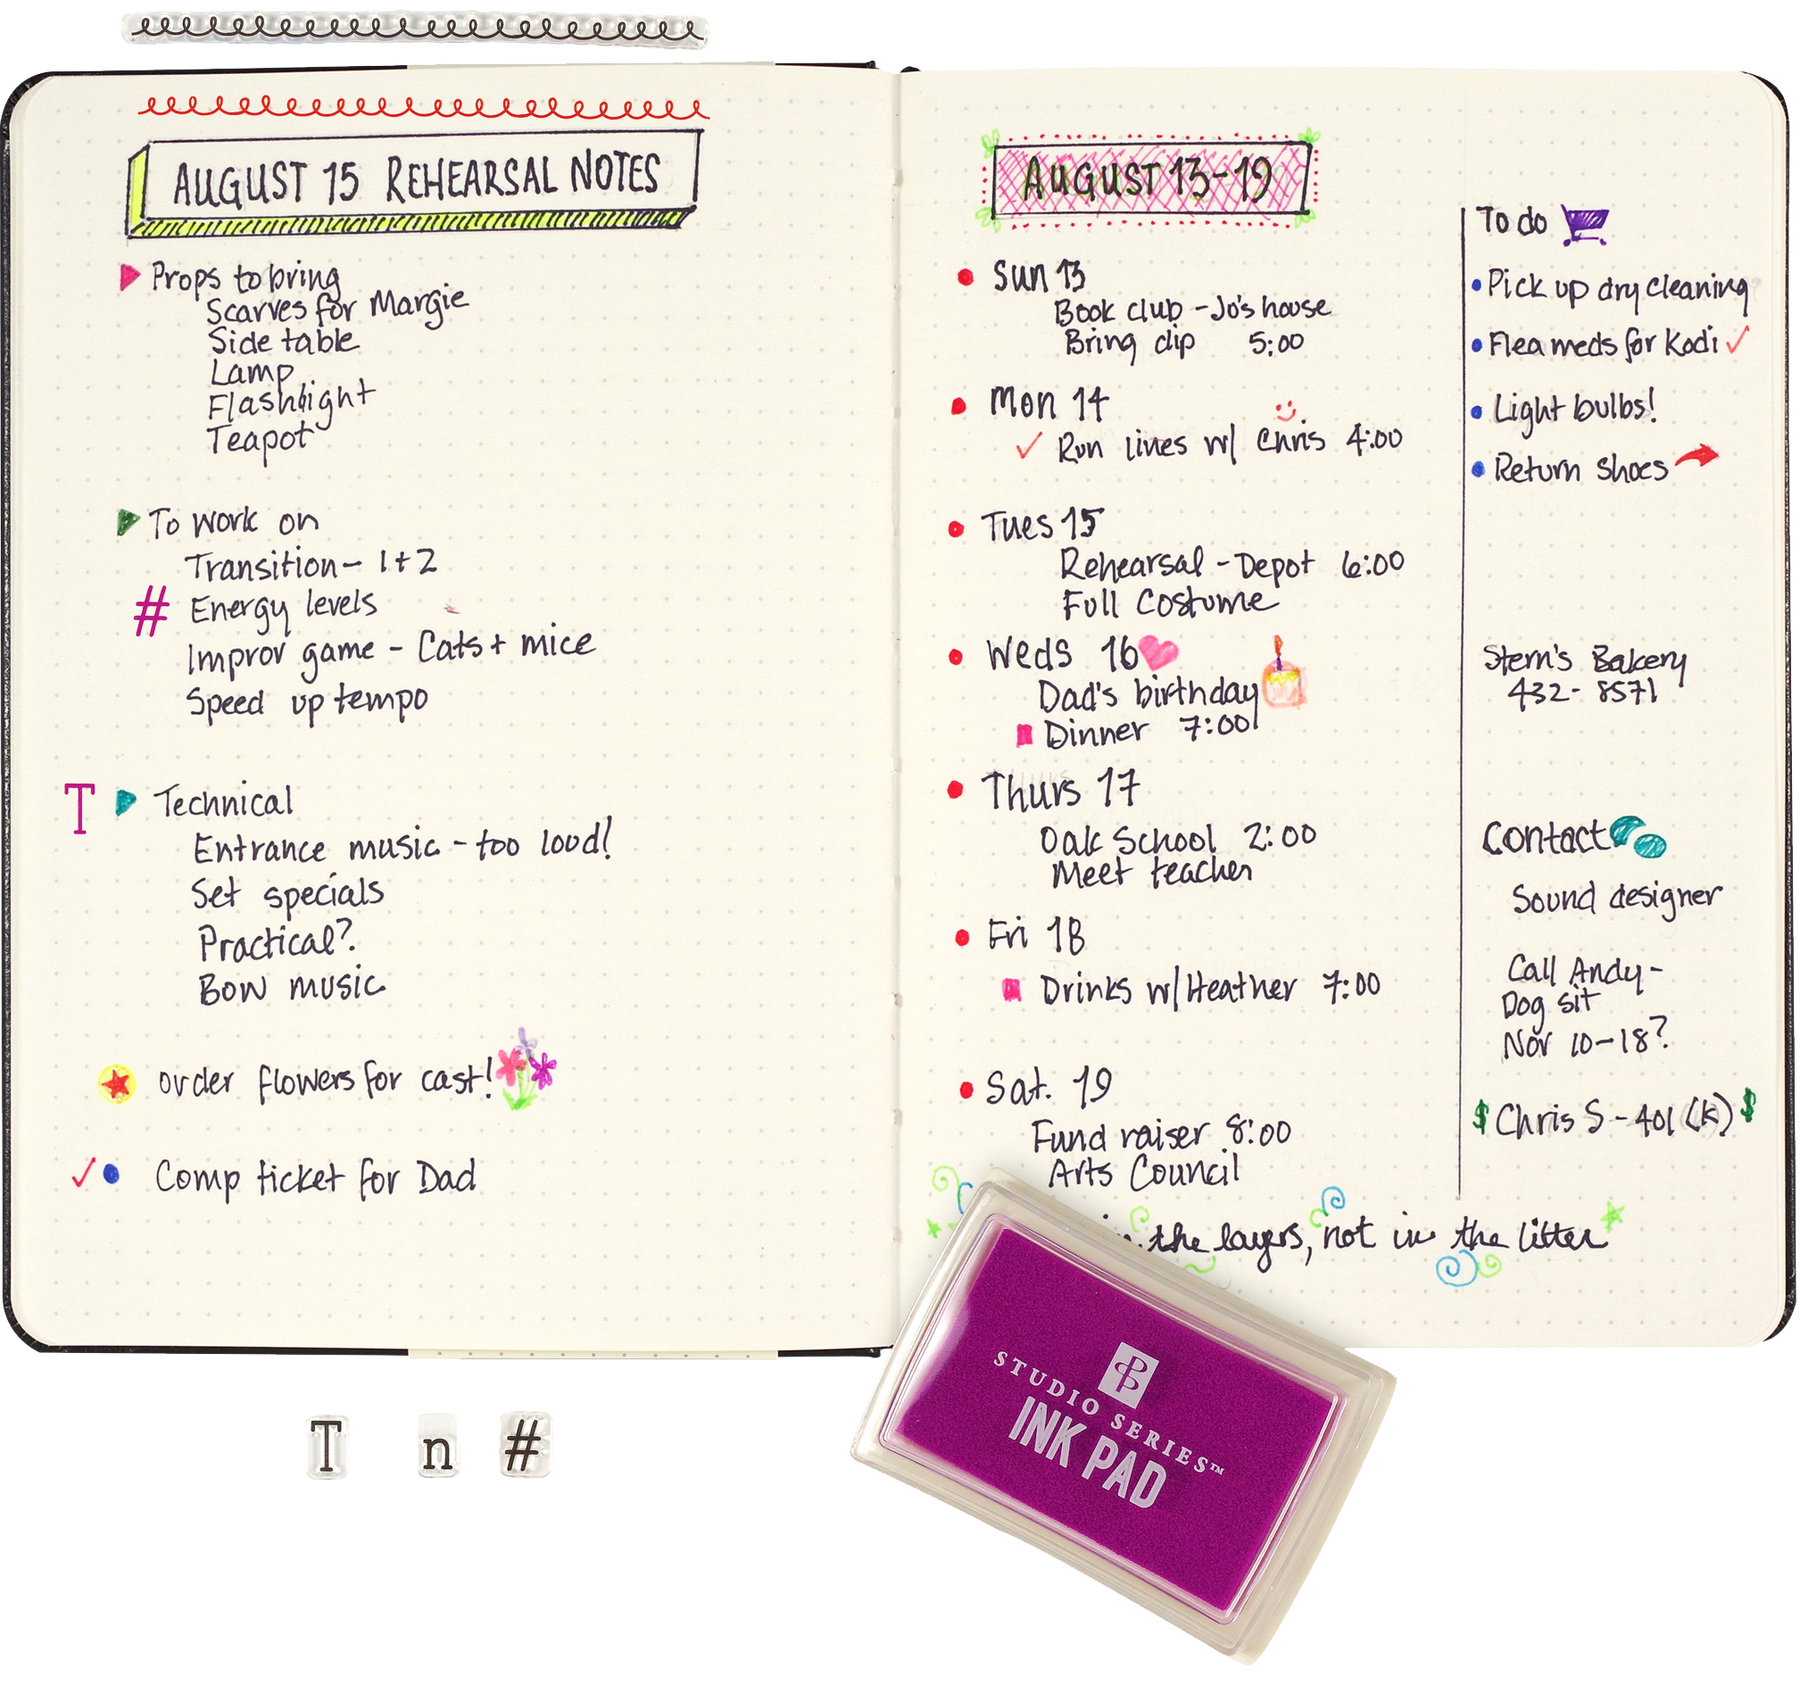 AUGUST 15 REHEARSAL NOTES
Props to bring
Scarves for Margie
Side table
Lamp
Flashlight
Teapot
To work on
Transition - 1+2
# Energy levels
Improv game - Cats + mice
Speed up tempo
T Technical
Entrance music - too loud!
Set specials
Practical?
Bow music
order flowers for cast!
Comp ticket for Dad
AUGUST 13-19
Sun 13
Book club - Jo's house
Bring dip 5:00
Mon 14
Run lines w/ Chris 4:00
Tues 15
Rehearsal - Depot 6:00
Full Costume
Weds 16
Dad's birthday
Dinner 7:00
Thurs 17
Oak School 2:00
Meet teacher
Fri 18
Drinks w/ Heather 7:00
Sat. 19
Fund raiser 8:00
Arts Council
the layers, not in the litter
To do
Pick up dry cleaning
Flea meds for Kodi
Light bulbs!
Return shoes
Stern's Bakery
432-8571
Contact
Sound designer
Call Andy -
Dog sit
Nov 10-18?
$ Chris S - 401(K) $
STUDIO SERIES™
INK PAD
T n #